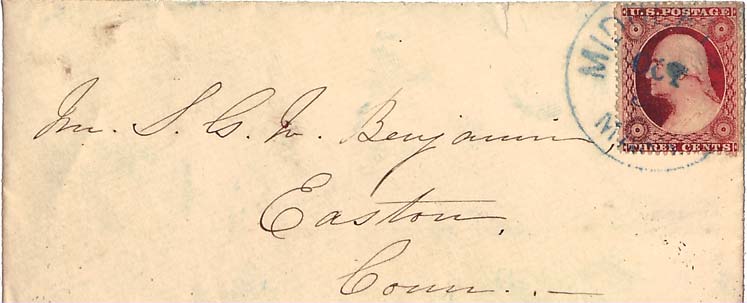 U.S. POSTAGE
THREE CENTS
Mr. S. G. W. Benjamin,
Easton,
Conn. . —